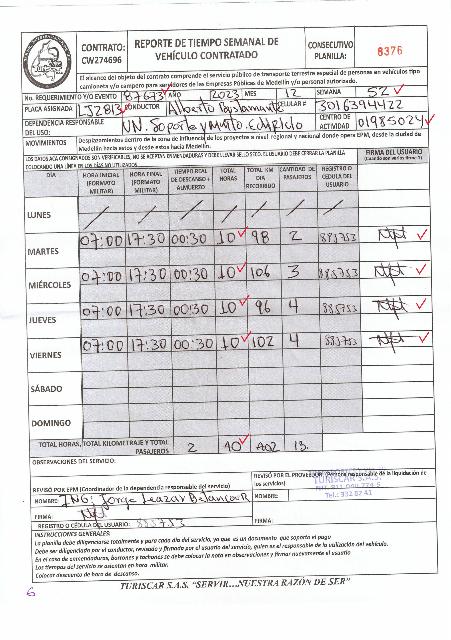 CONTRATO: CW274696
REPORTE DE TIEMPO SEMANAL DE VEHÍCULO CONTRATADO
CONSECUTIVO PLANILLA: 8376
El alcance del objeto del contrato comprende el servicio público de transporte terrestre especial de personas en vehículos tipo camioneta y/o campero para servidores de las Empresas Públicas de Medellín y/o personal autorizado.
No. REQUERIMIENTO Y/O EVENTO 87673 AÑO 2023 MES 12 SEMANA 52
PLACA ASIGNADA LJZ813 CONDUCTOR Alberto Bustamante CELULAR # 3016394422
DEPENDENCIA RESPONSABLE DEL USO: UN. Soporte y Mntto. Edificio CENTRO DE ACTIVIDAD 01985024
MOVIMIENTOS Desplazamientos dentro de la zona de influencia de los proyectos a nivel regional y nacional donde opera EPM, desde la ciudad de Medellín hacia estos y desde estos hacia Medellín.
LOS DATOS ACÁ CONSIGNADOS SON VERIFICABLES, NO SE ACEPTAN ENMENDADURAS Y DEBE LLEVAR SELLO SECO. EL USUARIO DEBE CERRAR LA PLANILLA COLOCANDO UNA LÍNEA EN LOS DÍAS NO UTILIZADOS
FIRMA DEL USUARIO
DÍA HORA INICIAL (FORMATO MILITAR) HORA FINAL (FORMATO MILITAR) TIEMPO REAL DE DESCANSO + ALMUERZO TOTAL HORAS TOTAL KM DIA RECORRIDO CANTIDAD DE PASAJEROS REGISTRO O CÉDULA DEL USUARIO
LUNES
MARTES 07:00 17:30 00:30 10 98 2 885753
MIÉRCOLES 07:00 17:30 00:30 10 106 3 885753
JUEVES 07:00 17:30 00:30 10 96 4 885753
VIERNES 07:00 17:30 00:30 10 102 4 885753
SÁBADO
DOMINGO
TOTAL HORAS, TOTAL KILOMETRAJE Y TOTAL PASAJEROS 2 40 402 13.
OBSERVACIONES DEL SERVICIO:
REVISÓ POR EPM (Coordinador de la dependencia responsable del servicio)
REVISÓ POR EL PROVEEDOR (Persona responsable de la liquidación de los servicios)
TURISCAR S.A.S.
Tel.: 332 82 41
NOMBRE: ING: Jorge Leazar Betancur
NOMBRE:
FIRMA:
FIRMA:
REGISTRO O CÉDULA DEL USUARIO: 885753
INSTRUCCIONES GENERALES
La planilla debe diligenciarse totalmente y para cada día del servicio, ya que es un documento que soporta el pago
Debe ser diligenciada por el conductor, revisada y firmada por el usuario del servicio, quien es el responsable de la utilización del vehículo.
En el caso de enmendaduras, borrones y tachones se debe colocar la nota en observaciones y firmar nuevamente el usuario
Los tiempos del servicio se asientan en hora militar.
Colocar descuento de hora de descanso.
TURISCAR S.A.S. "SERVIR...NUESTRA RAZÓN DE SER"
6